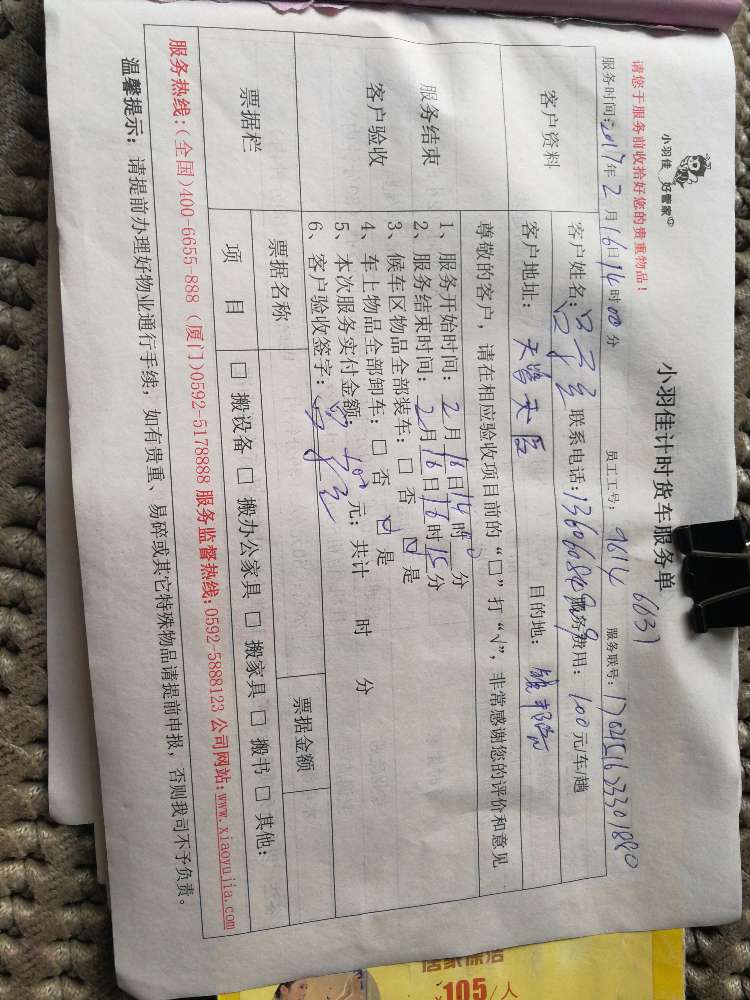 小羽佳 好管家
小羽佳计时货车服务单
请您于服务前收拾好您的贵重物品！
员工工号：9614 6637
服务时间：2017年2月16日14时00分
服务联号：
客户资料
客户姓名：
联系电话：
服务费用：100元/车/趟
客户地址：
目的地：
服务结束
客户验收
尊敬的客户，请在相应验收项目前的“□”打“√”，非常感谢您的评价和意见
1、服务开始时间：2月16日14时00分
2、服务结束时间：2月16日16时15分
3、候车区物品全部装车：□否 ☑是
4、车上物品全部卸车：□否 ☑是
5、本次服务实付金额：100元；共计 时 分
6、客户验收签字：
票据栏
票据名称
票据金额
项目
□搬设备 □搬办公家具 □搬家具 □搬书 □其他：
服务热线：(全国)400-6655-888 (厦门)0592-5178888 服务监督热线：0592-5888123 公司网站：www.xiaoyujia.com
温馨提示：请提前办理好物业通行手续，如有贵重、易碎或其它特殊物品请提前申报，否则我司不予负责。
居家保洁
105/人